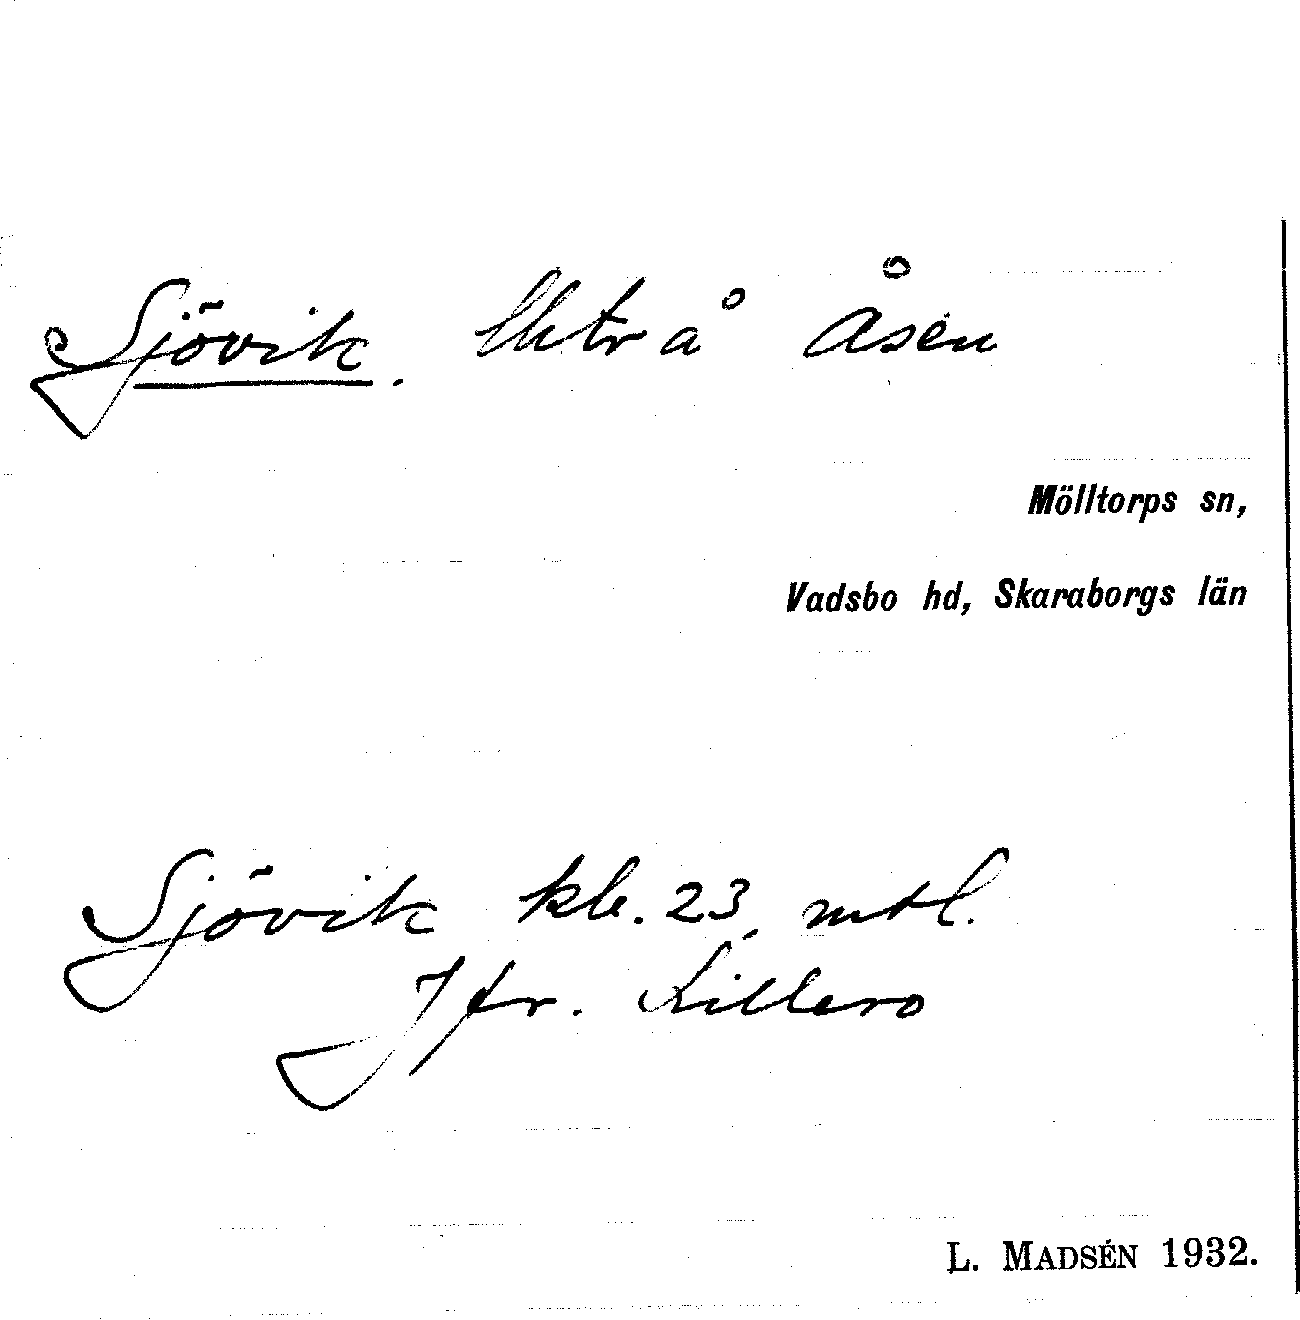 Sjövik. lht å Åsen
Mölltorps sn,
Vadsbo hd, Skaraborgs län
Sjövik kb. 23 mtl.
Jfr. Killero
L. MADSÉN 1932.